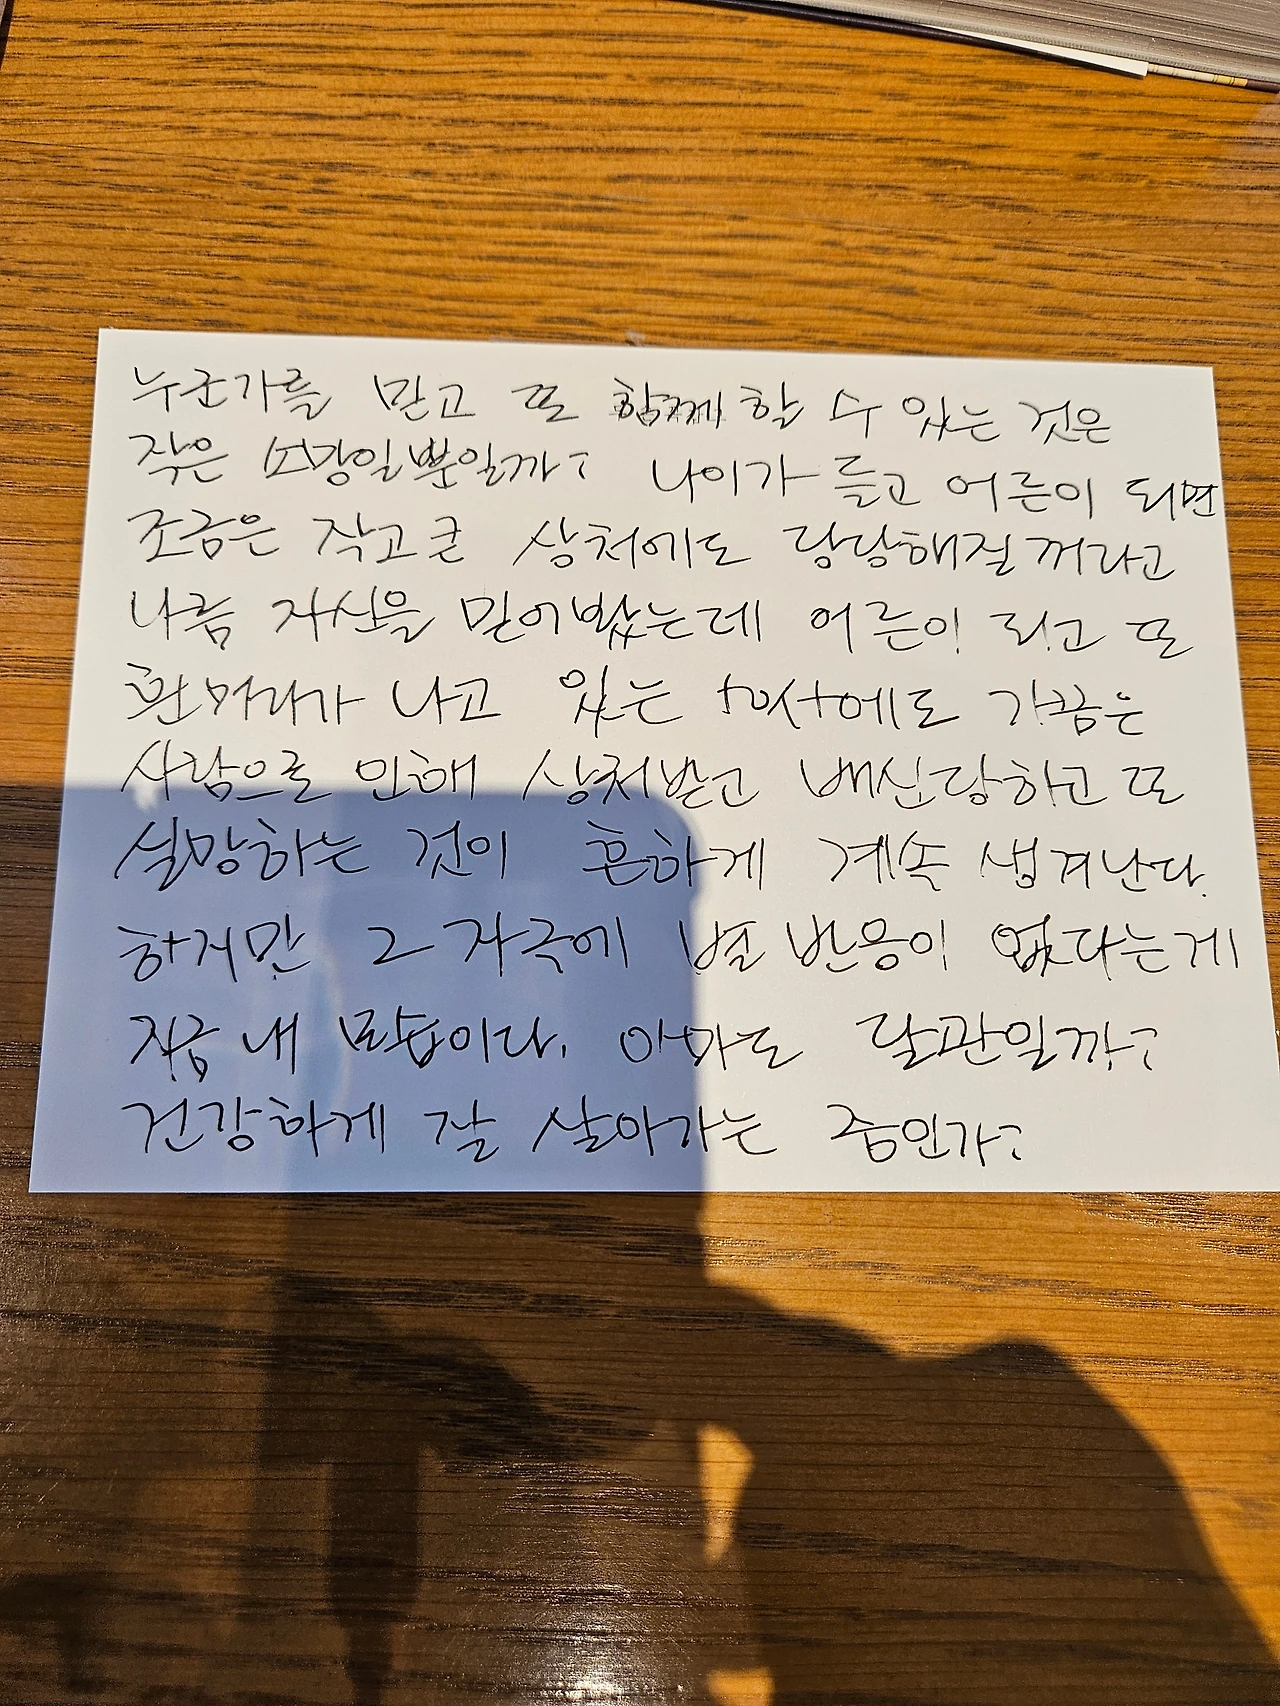 누군가를 믿고 또 함께 할 수 있는 것은
작은 소망일뿐일까? 나이가 들고 어른이 되면
조금은 작고 큰 상처에도 당당해질꺼라고
나름 자신을 믿어봤는데 어른이 되고 또
흰머리가 나고 있는 향상에도 가끔은
사람으로 인해 상처받고 배신당하고 또
실망하는 것이 흔하게 계속 생겨난다.
하지만 그 자극에 별 반응이 없다는게
지금 내 모습이다. 아마도 달관일까?
건강하게 잘 살아가는 중인가?